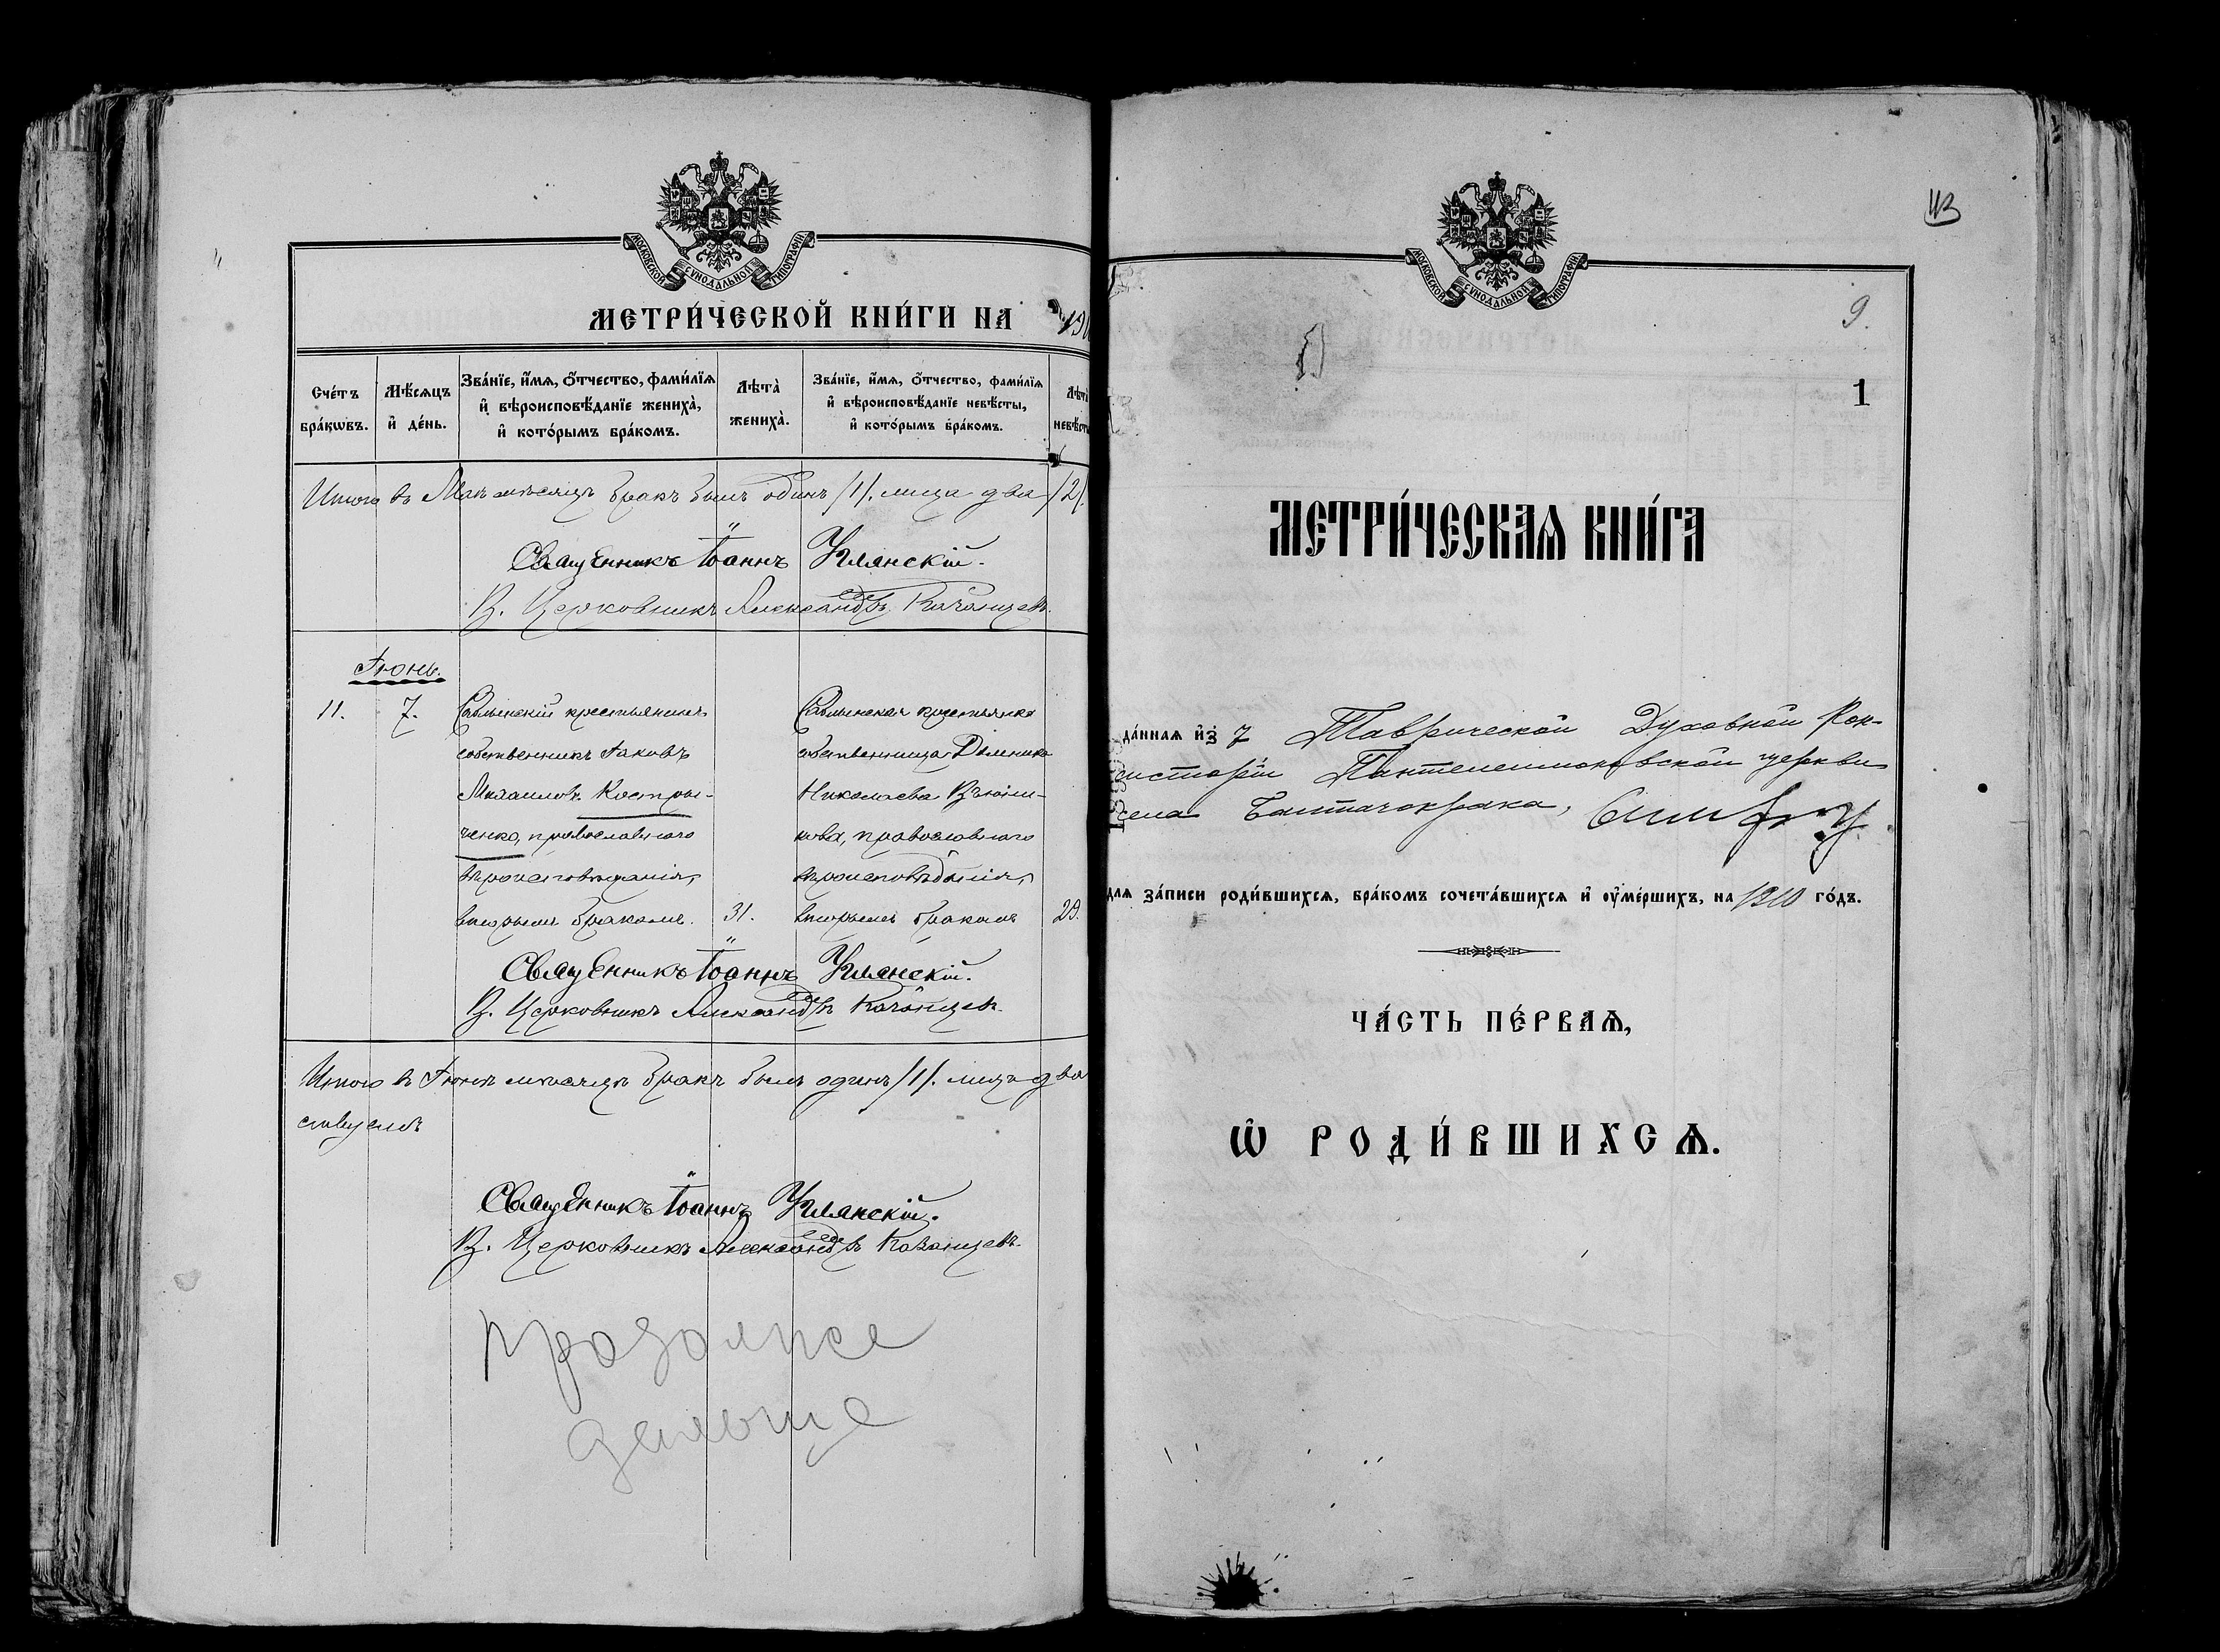 МОСКОВСКОЙ СѴНОДАЛЬНОЙ ТИПОГРАФІИ
МЕТРИ́ЧЕСКОЙ КНИ́ГИ НА 191
Сче́тъ бра́кѡвъ.
Мѣ́сѧцъ и҆ де́нь.
Зва́нїе, и҆́мѧ, ѻ҆́тчество, фами́лїѧ и҆ вѣроисповѣ́данїе жениха̀, и҆ кото́рымъ бра́комъ.
Лѣ́та̀ жениха̀.
Зва́нїе, и҆́мѧ, ѻ҆́тчество, фами́лїѧ и҆ вѣроисповѣ́данїе невѣ́сты, и҆ кото́рымъ бра́комъ.
Лѣ́та̀ невѣ́сты
Итого въ Маѣ мѣсяцѣ бракъ былъ одинъ /1/. лица два /2/.
Священникъ Іоаннъ Углянскій.
И. Церковникъ Александръ Казанцевъ.
Іюнь.
11. 7.
крестьянинъ
собственникъ Іаковъ
Михаиловъ Костры-
ченко, православнаго
вѣроисповѣданія,
вторымъ бракомъ. 31.
крестьянка
собственница
Николаева
православнаго
вѣроисповѣданія,
вторымъ бракомъ 29.
Священникъ Іоаннъ Углянскій.
И. Церковникъ Александръ Казанцевъ.
Итого въ Іюнѣ мѣсяцѣ бракъ былъ одинъ /1/. лица два
Священникъ Іоаннъ Углянскій.
И. Церковникъ Александръ Казанцевъ.
дальше
МОСКОВСКОЙ СѴНОДАЛЬНОЙ ТИПОГРАФІИ
113
9.
1
МЕТРИ́ЧЕСКАѦ КНИ́ГА
да́ннаѧ и҆з̾ Таврической Духовной Кон-
систоріи Пантелеимоновской церкви
села
длѧ за́писи роди́вшихсѧ, бра́комъ сочета́вшихсѧ и҆ ᲂу҆ме́ршихъ, на 1910 го́дъ.
ЧА́СТЬ ПЕ́РВАѦ,
Ѽ РОДИ́ВШИХСѦ.